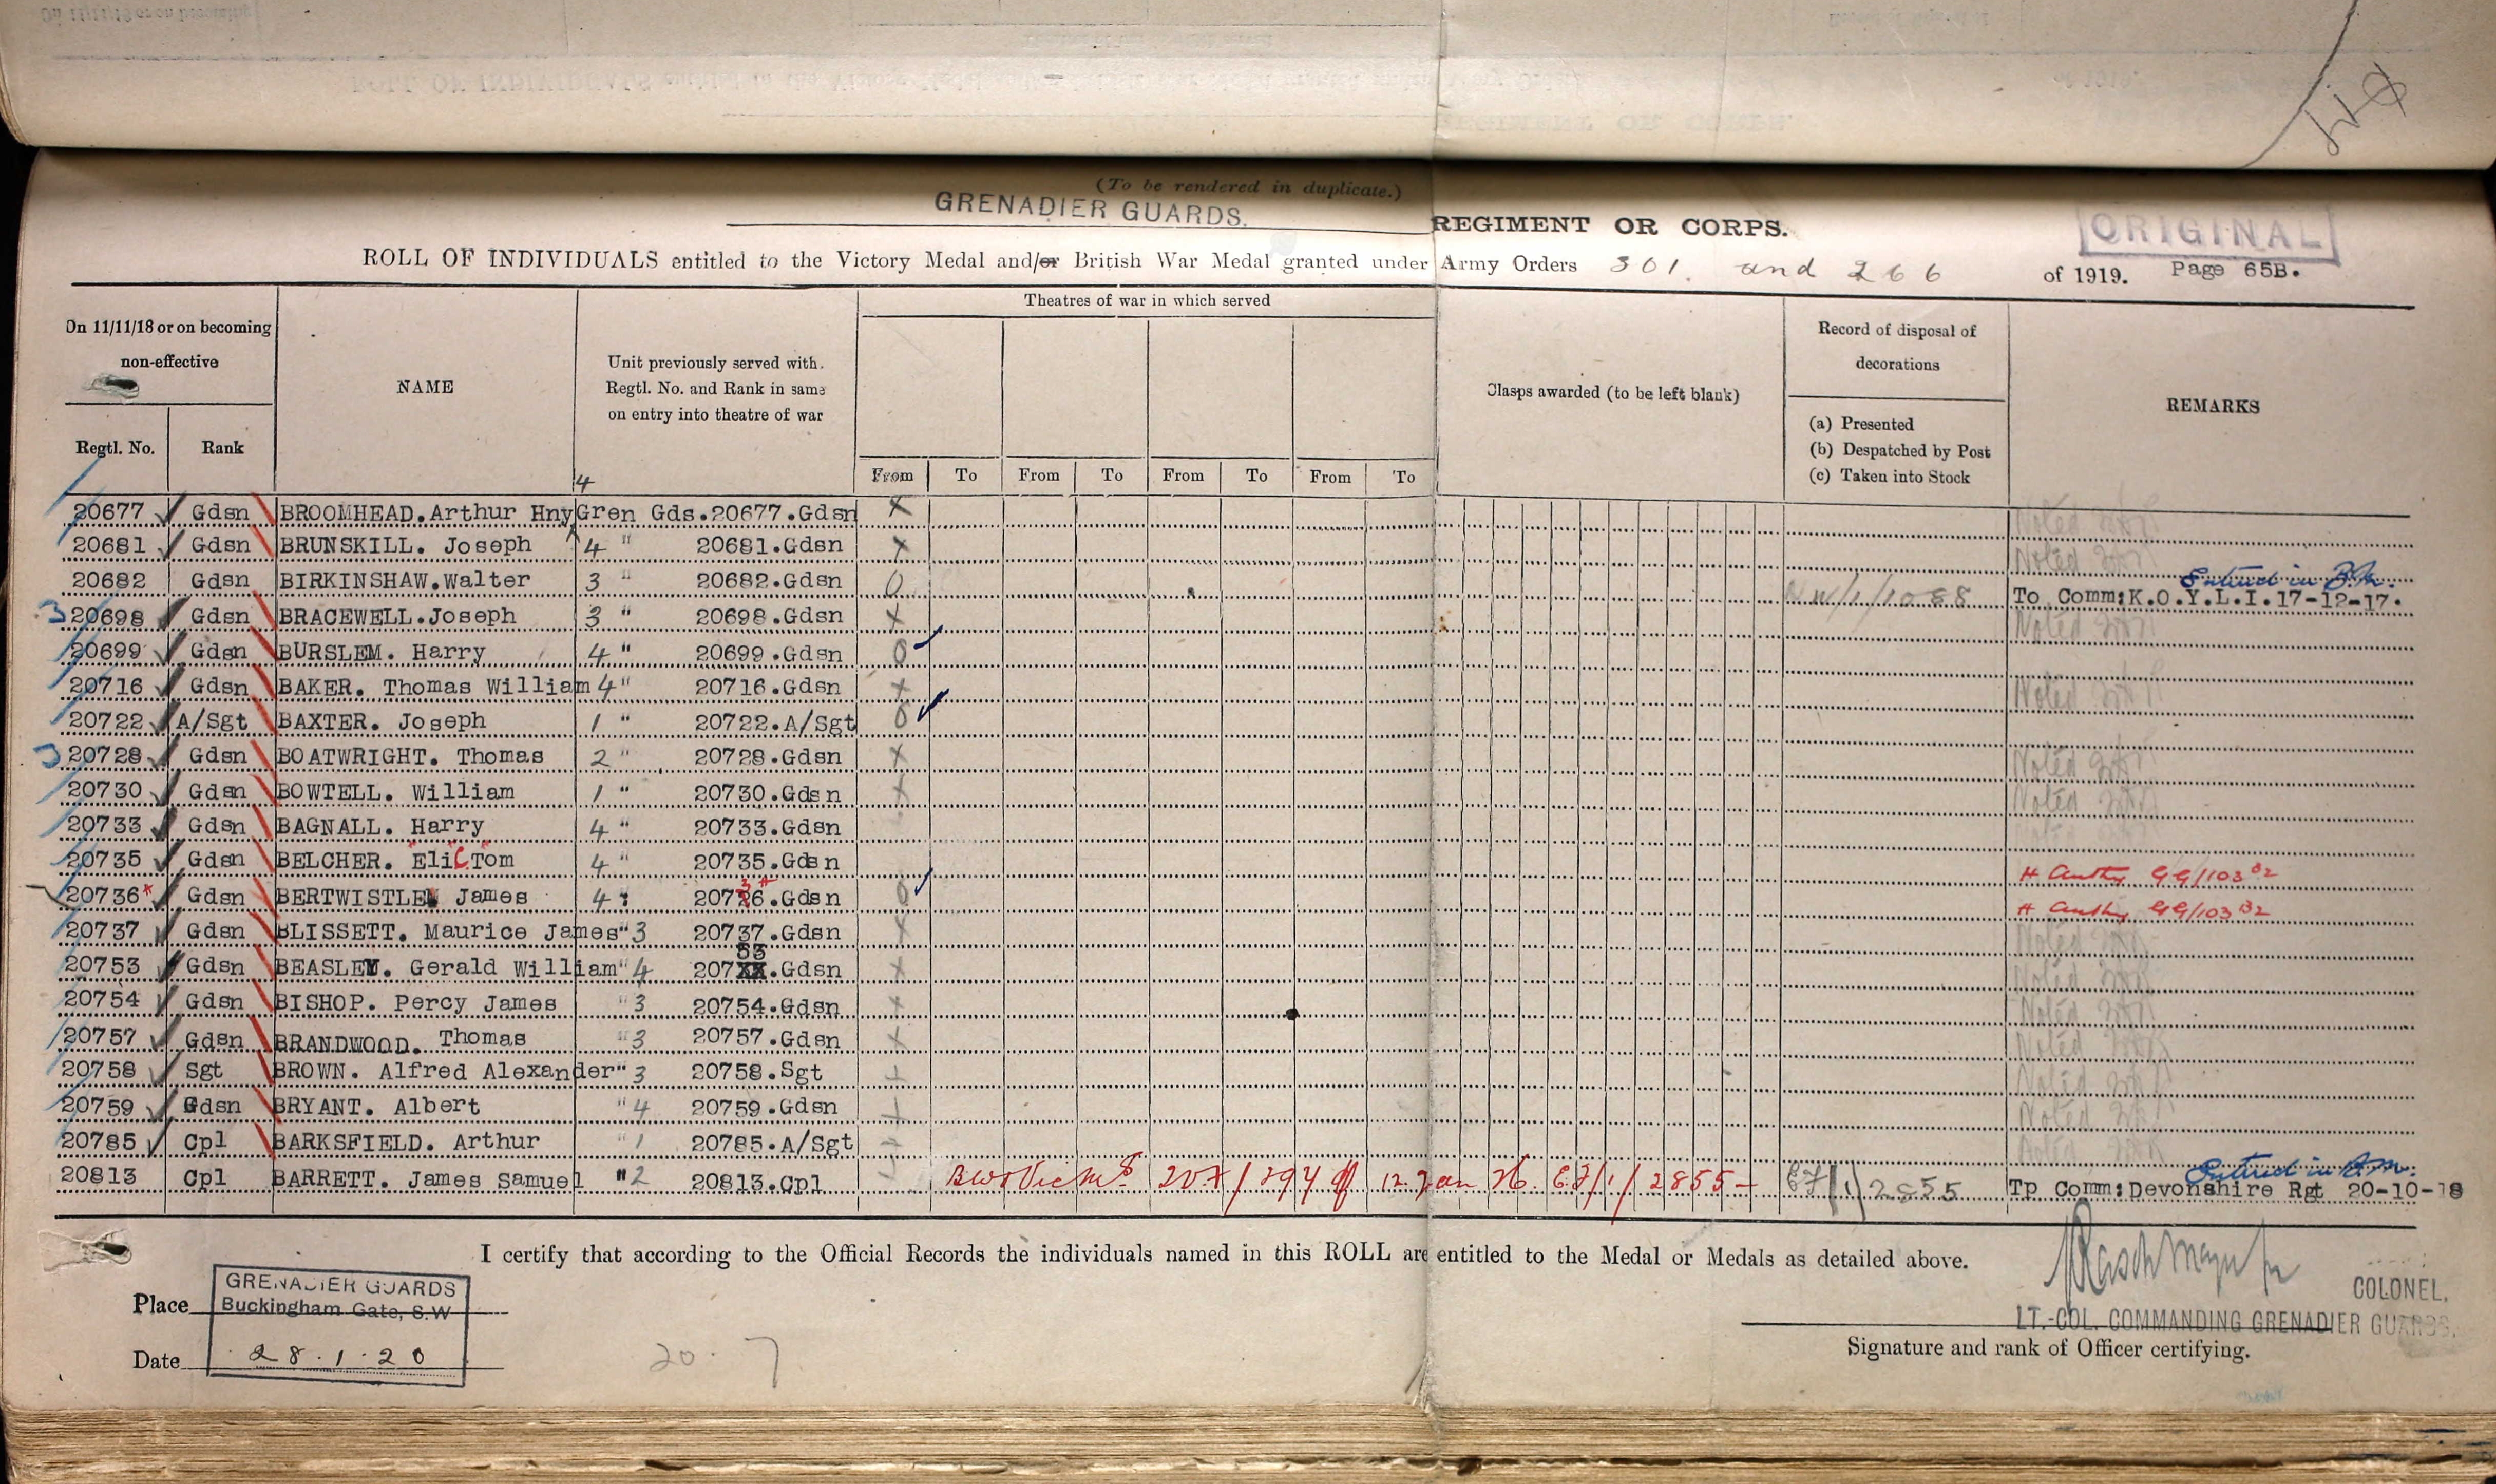 (To be rendered in duplicate.)
GRENADIER GUARDS. REGIMENT OR CORPS. ORIGINAL
ROLL OF INDIVIDUALS entitled to the Victory Medal and/or British War Medal granted under Army Orders 301. and 266 of 1919. Page 65B.
On 11/11/18 or on becoming non-effective
NAME
Unit previously served with, Regtl. No. and Rank in same on entry into theatre of war
Theatres of war in which served
Clasps awarded (to be left blank)
Record of disposal of decorations
(a) Presented
(b) Despatched by Post
(c) Taken into Stock
REMARKS
Regtl. No. Rank From To From To From To From To
20677 Gdsn BROOMHEAD. Arthur Hny 4 Gren Gds. 20677. Gdsn X Noted
20681 Gdsn BRUNSKILL. Joseph 4 " 20681. Gdsn X Noted
20682 Gdsn BIRKINSHAW. Walter 3 " 20682. Gdsn O To Comm: K.O.Y.L.I. 17-12-17. Entered in
3 20698 Gdsn BRACEWELL. Joseph 3 " 20698. Gdsn X Noted
20699 Gdsn BURSLEM. Harry 4 " 20699. Gdsn O
20716 Gdsn BAKER. Thomas William 4 " 20716. Gdsn X Noted
20722 A/Sgt BAXTER. Joseph 1 " 20722. A/Sgt O
3 20728 Gdsn BOATWRIGHT. Thomas 2 " 20728. Gdsn X Noted
20730 Gdsn BOWTELL. William 1 " 20730. Gdsn X Noted
20733 Gdsn BAGNALL. Harry 4 " 20733. Gdsn
20735 Gdsn BELCHER. "Eli C. Tom" 4 " 20735. Gdsn # Authy GG/103 B2
20736* Gdsn BERTWISTLE James 4 : 20736. Gdsn O # Authy GG/103 B2
20737 Gdsn BLISSETT. Maurice James " 3 20737. Gdsn X Noted
20753 Gdsn BEASLEY. Gerald William " 4 20753. Gdsn X Noted
20754 Gdsn BISHOP. Percy James " 3 20754. Gdsn X Noted
20757 Gdsn BRANDWOOD. Thomas " 3 20757. Gdsn X Noted
20758 Sgt BROWN. Alfred Alexander " 3 20758. Sgt X Noted
20759 Gdsn BRYANT. Albert " 4 20759. Gdsn X Noted
20785 Cpl BARKSFIELD. Arthur " 1 20785. A/Sgt Noted
20813 Cpl BARRETT. James Samuel " 2 20813. Cpl 12 Jan 26 E7/1/2855 E7/1/2855 Tp Comm: Devonshire Rgt 20-10-18 Entered in
I certify that according to the Official Records the individuals named in this ROLL are entitled to the Medal or Medals as detailed above.
Place GRENADIER GUARDS
Buckingham Gate, S.W
Date 28.1.20
20. 7
COLONEL,
LT.-COL. COMMANDING GRENADIER GUARDS.
Signature and rank of Officer certifying.